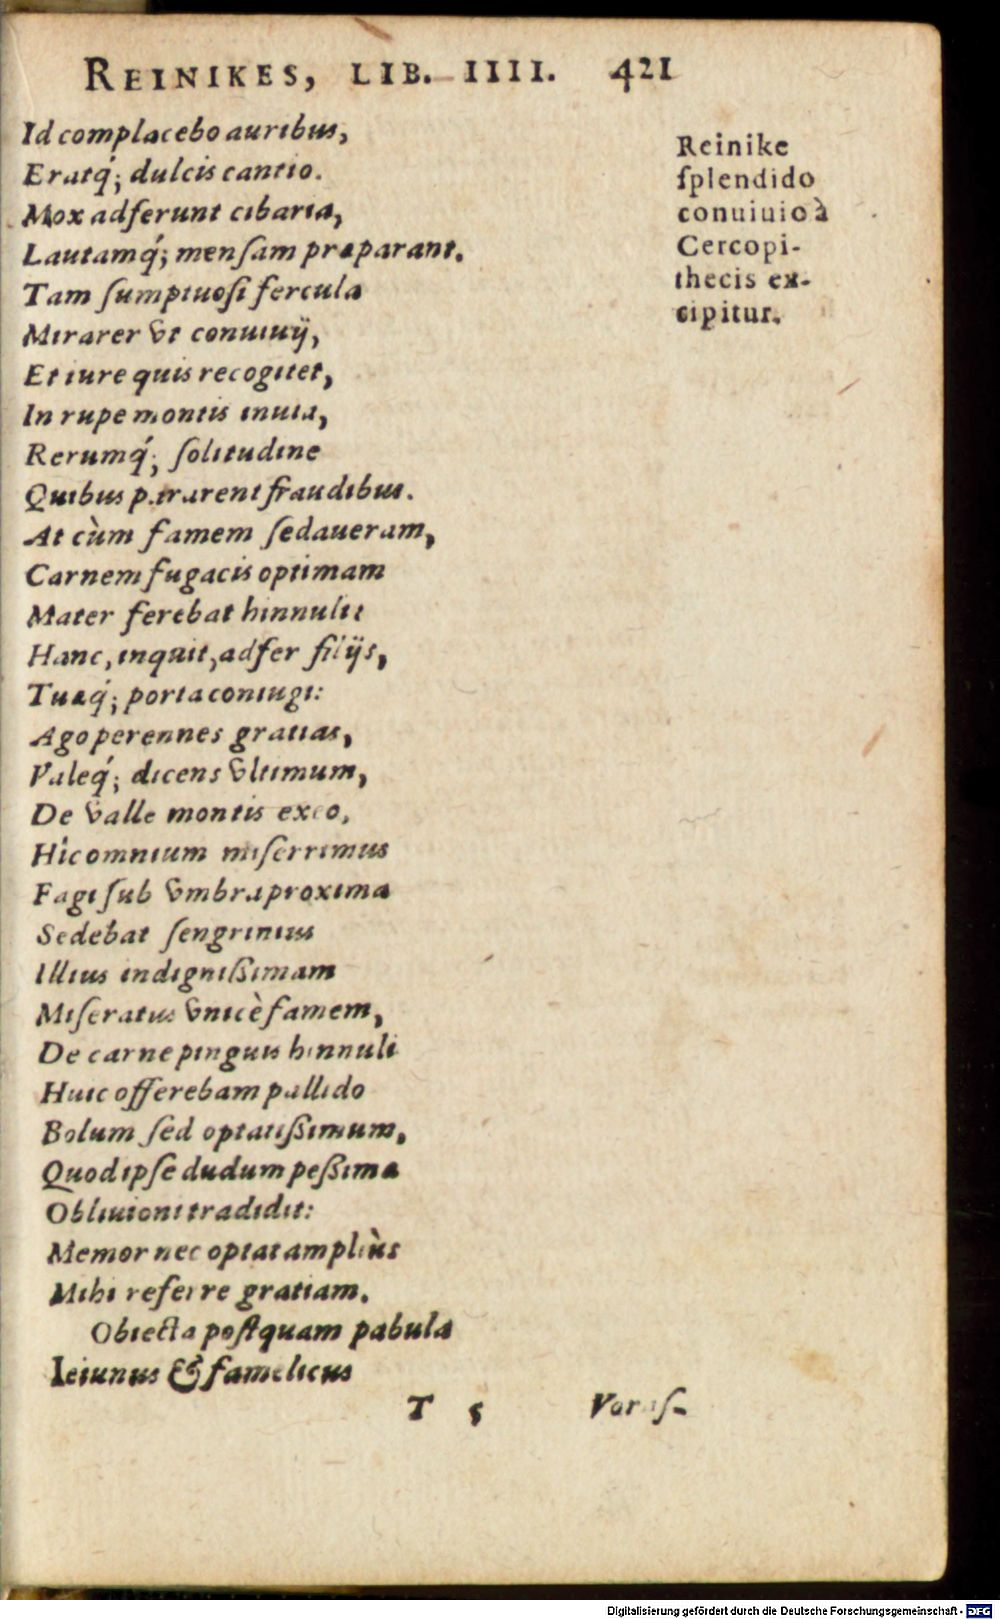 REINIKES, LIB. IIII. 421
Id complacebo auribus,
Eratq́; dulcis cantio.
Mox adferunt cibaria,
Lautamq́; menſam præparant.
Tam ſumptuoſi fercula
Mirarer vt conuiuij,
Et iure quis recogitet,
In rupe montis inuia,
Rerumq́; ſolitudine
Quibus pararent fraudibus.
At cùm famem ſedaueram,
Carnem fugacis optimam
Mater ferebat hinnuli:
Hanc, inquit, adfer filijs,
Tuæq́; porta coniugi:
Ago perennes gratias,
Valeq́; dicens vltimum,
De valle montis exeo,
Hîc omnium miſerrimus
Fagi ſub vmbra proxima
Sedebat ſengrinius
Illius indignißimam
Miſeratus vnicè famem,
De carne pinguis hinnuli
Huic offerebam pallido
Bolum ſed optatißimum,
Quod ipſe dudum peßima
Obliuioni tradidit:
Memor nec optat ampliùs
Mihi referre gratiam.
Obiecta poſtquam pabula
Ieiunus & famelicus
T 5 Voraſ-
Reinike
ſplendido
conuiuio à
Cercopi-
thecis ex-
cipitur.
Digitalisierung gefördert durch die Deutsche Forschungsgemeinschaft - DFG